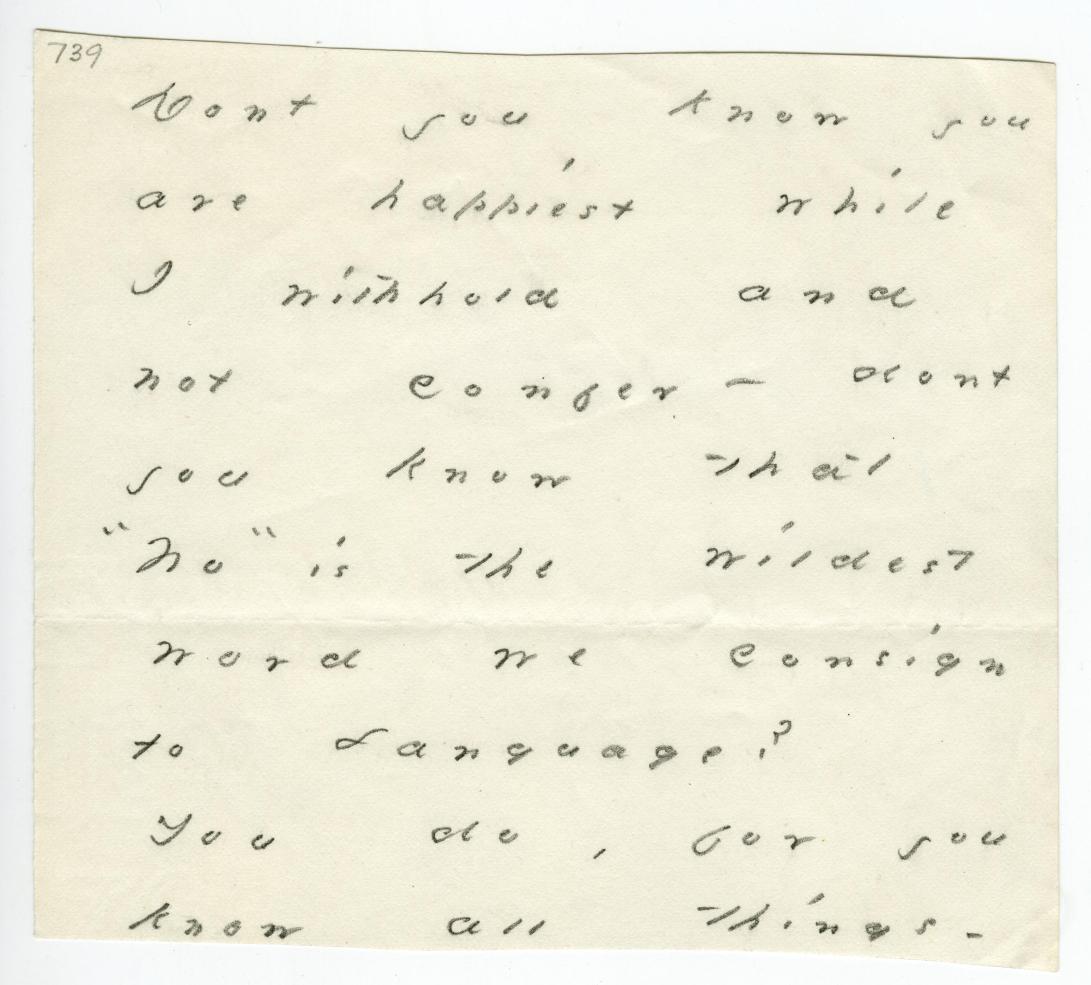 739
Dont you know you
are happiest while
I withhold and
not confer – dont
you know that
"No" is the wildest
word we consign
to Language?
You do, for you
know all things -